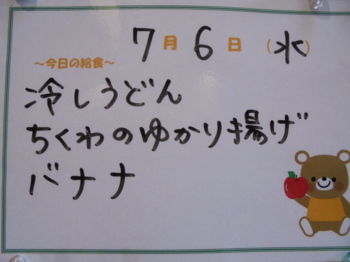 7月6日(水)
〜今日の給食〜
冷しうどん
ちくわのゆかり揚げ
バナナ